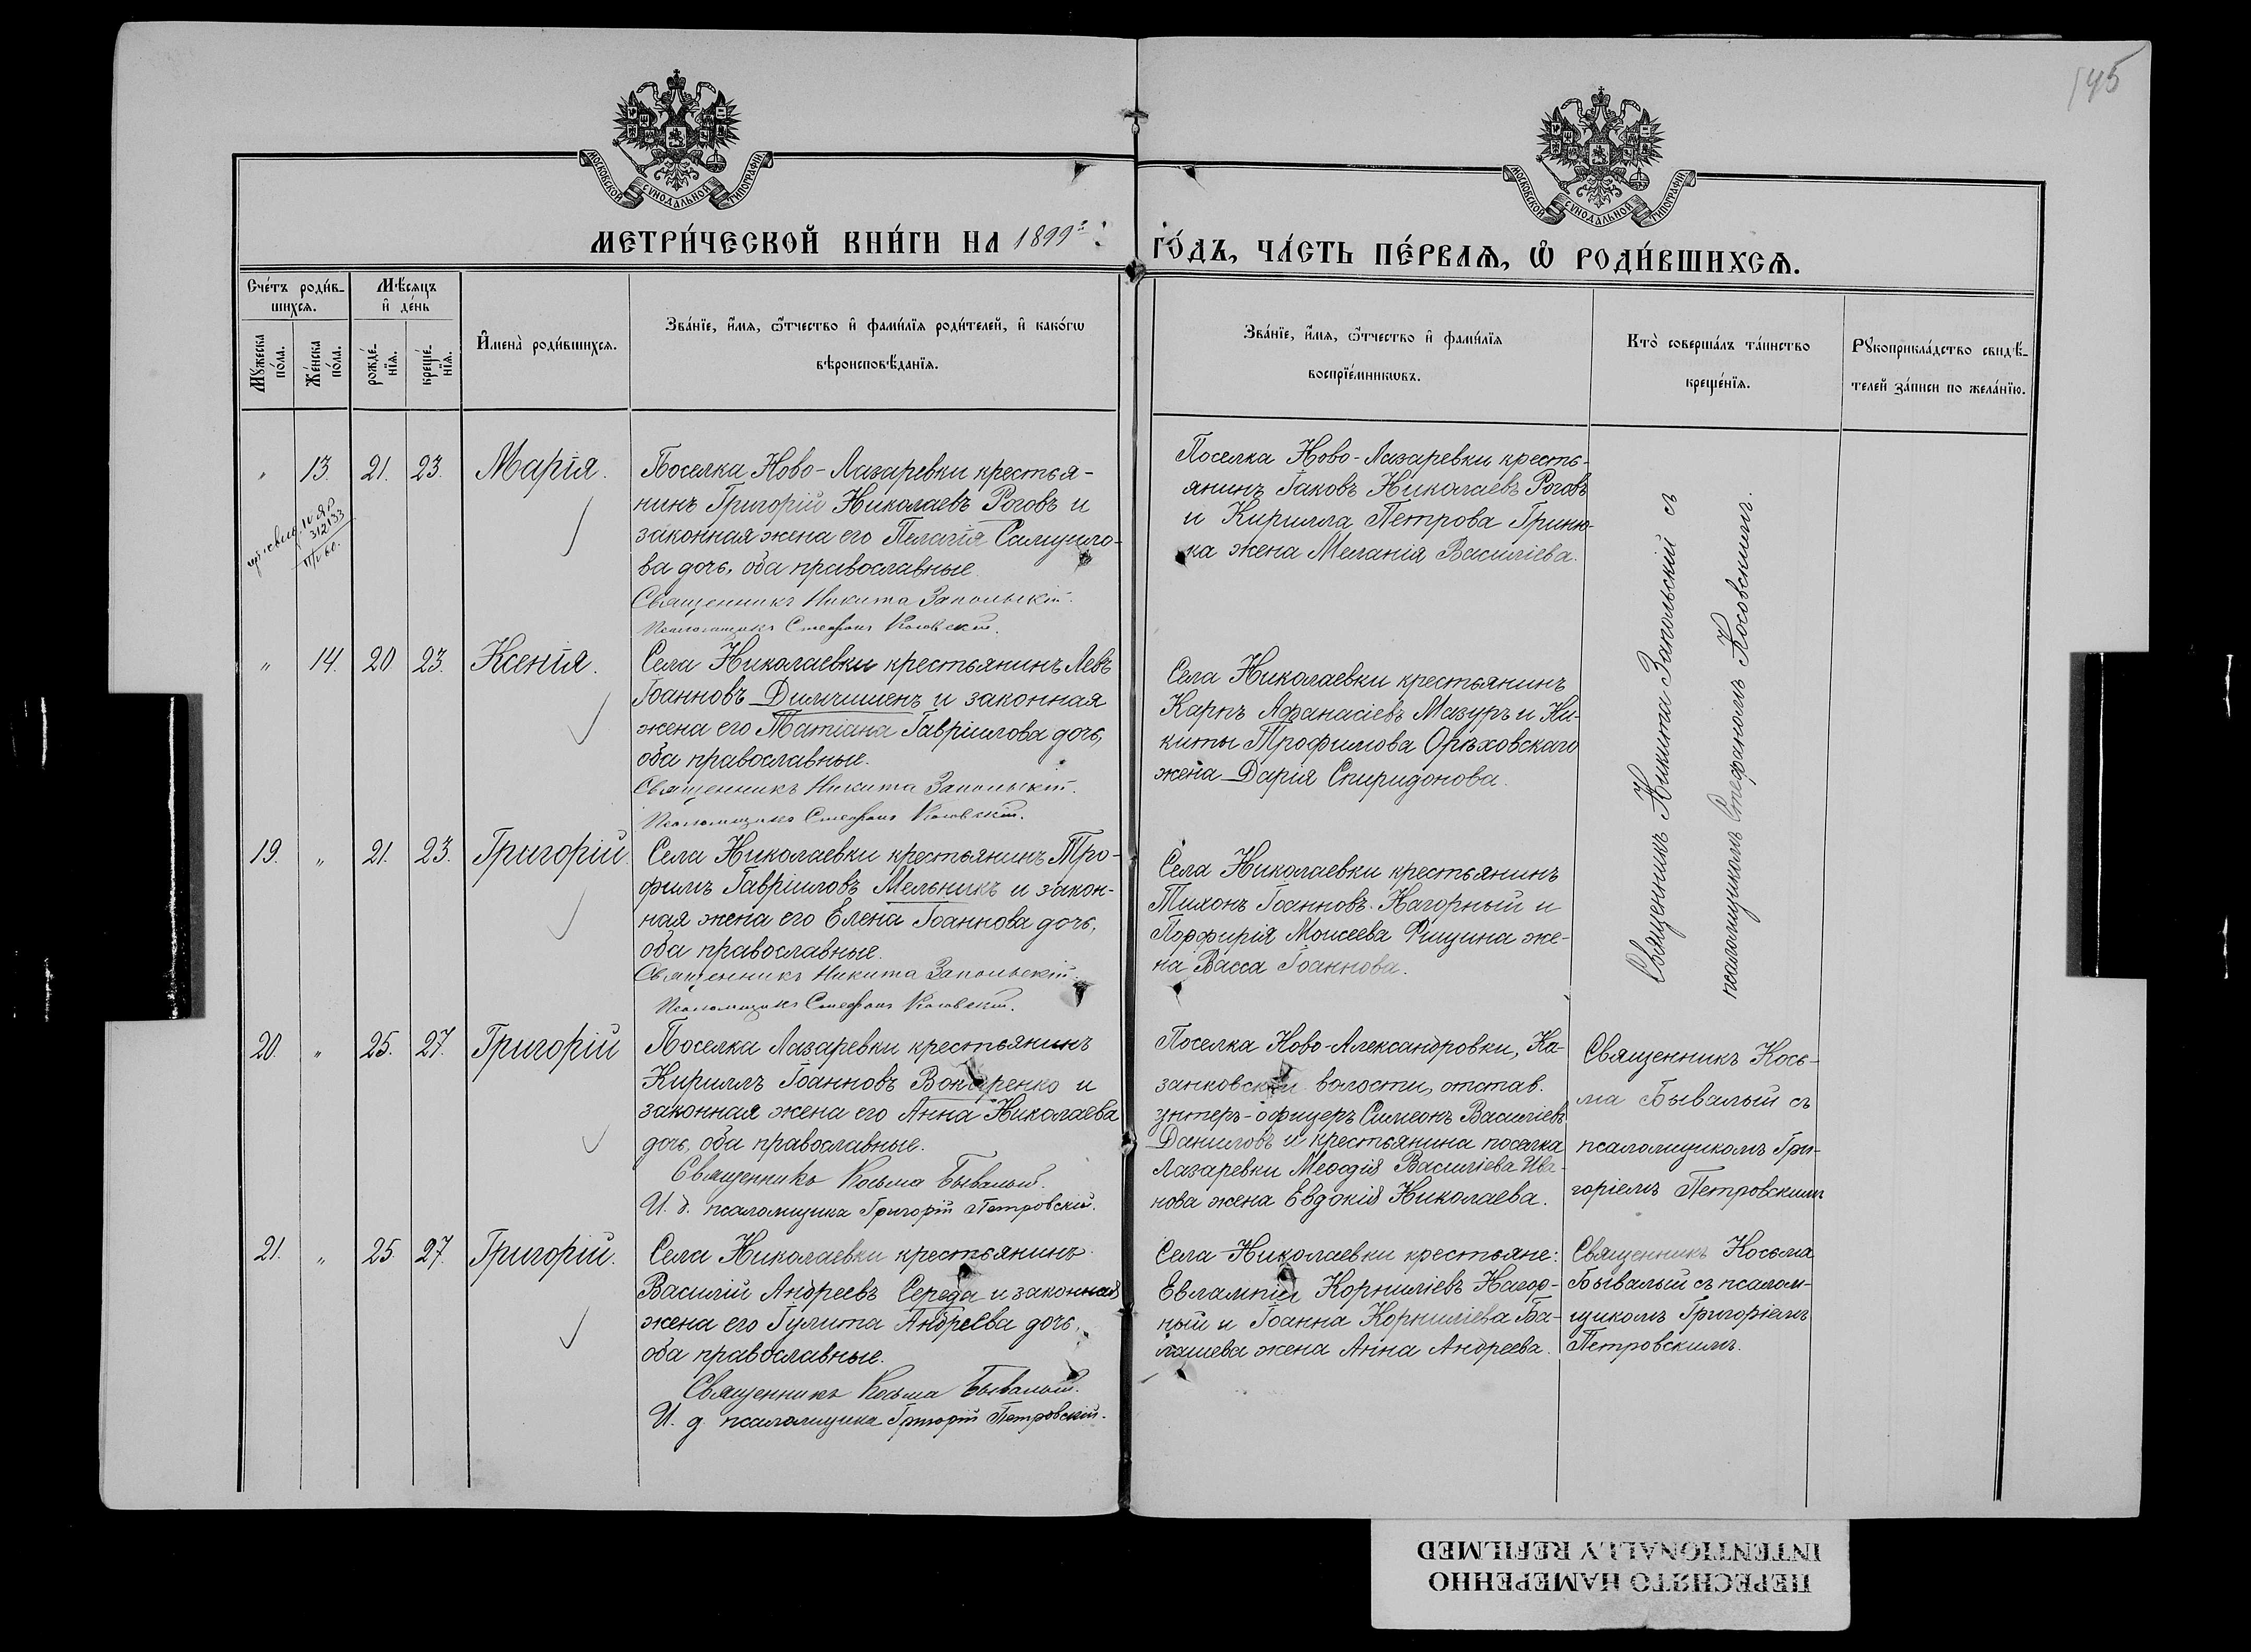 145
МОСКОВСКОЙ СѴНОДАЛЬНОЙ ТИПОГРАФІИ
МОСКОВСКОЙ СѴНОДАЛЬНОЙ ТИПОГРАФІИ
МЕТРИ́ЧЕСКОЙ КНИ́ГИ НА 1899 ГО́ДЪ, ЧА́СТЬ ПЕ́РВАѦ, Ѡ҆ РОДИ́ВШИХСѦ.
Сче́тъ роди́в-
шихсѧ.
Мѣ́сѧцъ
и҆ де́нь
Мꙋ́жеска
по́ла.
Же́нска
по́ла.
рожде́-
нїѧ.
креще́-
нїѧ.
И҆мена̀ роди́вшихсѧ.
Зва́нїе, и҆́мѧ, ѻ҆́тчество и҆ фами́лїѧ роди́телей, и҆ како́гѡ
вѣроисповѣ́данїѧ.
Зва́нїе, и҆́мѧ, ѻ҆́тчество и҆ фами́лїѧ
воспрїе́мникѡвъ.
Кто̀ соверша́лъ та́инство
креще́нїѧ.
Рꙋкоприкла́дство свидѣ́-
телей за́писи по жела́нїю.
" 13. 21. 23. Марія.
312133
Поселка Ново-Лазаревки крестья-
нинъ Григорій Николаевъ Роговъ и
законная жена его Пелагія Самуило-
ва дочь, оба православные
Священникъ Никита Запольскій.
Псаломщикъ Стефанъ Косовскій.
Поселка Ново-Лазаревки кресть-
янинъ Іаковъ Николаевъ Роговъ
и Кирилла Петрова Гриню-
ка жена Меланія Василіева.
Священникъ Никита Запольскій съ
псаломщикомъ Стефаномъ Косовскимъ.
" 14. 20. 23. Ксенія.
Села Николаевки крестьянинъ Левъ
Іоанновъ Димчишенъ и законная
жена его Татіана Гавріилова дочь,
оба православные.
Священникъ Никита Запольскій.
Псаломщикъ Стефанъ Косовскій.
Села Николаевки крестьянинъ
Карпъ Аѳанасіевъ Мазуръ и Ни-
киты Трофимова Орѣховскаго
жена Дарія Спиридонова.
19. " 21. 23. Григорій
Села Николаевки крестьянинъ Тро-
фимъ Гавріиловъ Мельникъ и закон-
ная жена его Елена Іоаннова дочь,
оба православные.
Священникъ Никита Запольскій.
Псаломщикъ Стефанъ Косовскій.
Села Николаевки крестьянинъ
Тихонъ Іоанновъ Нагорный и
Порфирія Моисеева Фищина же-
на Васса Іоаннова.
20. " 25. 27. Григорій
Поселка Лазаревки крестьянинъ
Кириллъ Іоанновъ Бондаренко и
законная жена его Анна Николаева
дочь, оба православные.
Священникъ Косьма Бывалый.
И. д. псаломщика Григорій Петровскій.
Поселка Ново-Александровки, Ка-
занковской волости, отстав.
унтеръ-офицеръ Симеонъ Василіевъ
Даниловъ и крестьянина поселка
Лазаревки Меѳодія Василіева Ива-
нова жена Евдокія Николаева.
Священникъ Кось-
ма Бывалый съ
псаломщикомъ Гри-
горіемъ Петровскимъ
21. " 25. 27. Григорій.
Села Николаевки крестьянинъ
Василій Андреевъ Середа и законная
жена его Іулита Андреева дочь,
оба православные.
Священникъ Косьма Бывалый.
И. д. псаломщика Григорій Петровскій.
Села Николаевки крестьяне:
Евлампій Корниліевъ Нагор-
ный и Іоанна Корниліева Ба-
лашева жена Анна Андреева.
Священникъ Косьма
Бывалый съ псалом-
щикомъ Григоріемъ
Петровскимъ.
ПЕРЕСНЯТО НАМЕРЕННО
INTENTIONALLY REFILMED